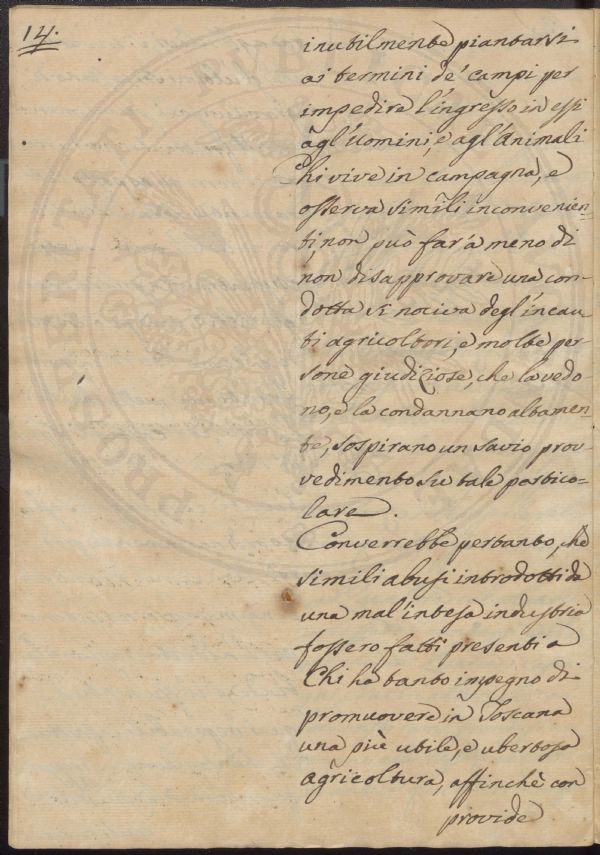 14.
inutilmente piantarsi
ai termini de' campi per
impedire l'ingresso in essi
agl'Uomini, e agl'Animali
Chi vive in campagna, e
osserva simili inconvenien=
ti, non può far' a meno di
non disapprovare una con=
dotta sì nociva degl'incau=
ti agricoltori, e molte per=
sone giudiziose, che la vedo=
no, e la condannano altamen=
te, sospirano un savio prov=
vedimento su tale partico=
lare.
Converrebbe pertanto, che
simili abusi introdotti da
una mal'intesa industria
fossero fatti presenti a
Chi ha tanto impegno di
promuovere in Toscana
una più utile, e ubertosa
agricoltura, affinchè con
provide